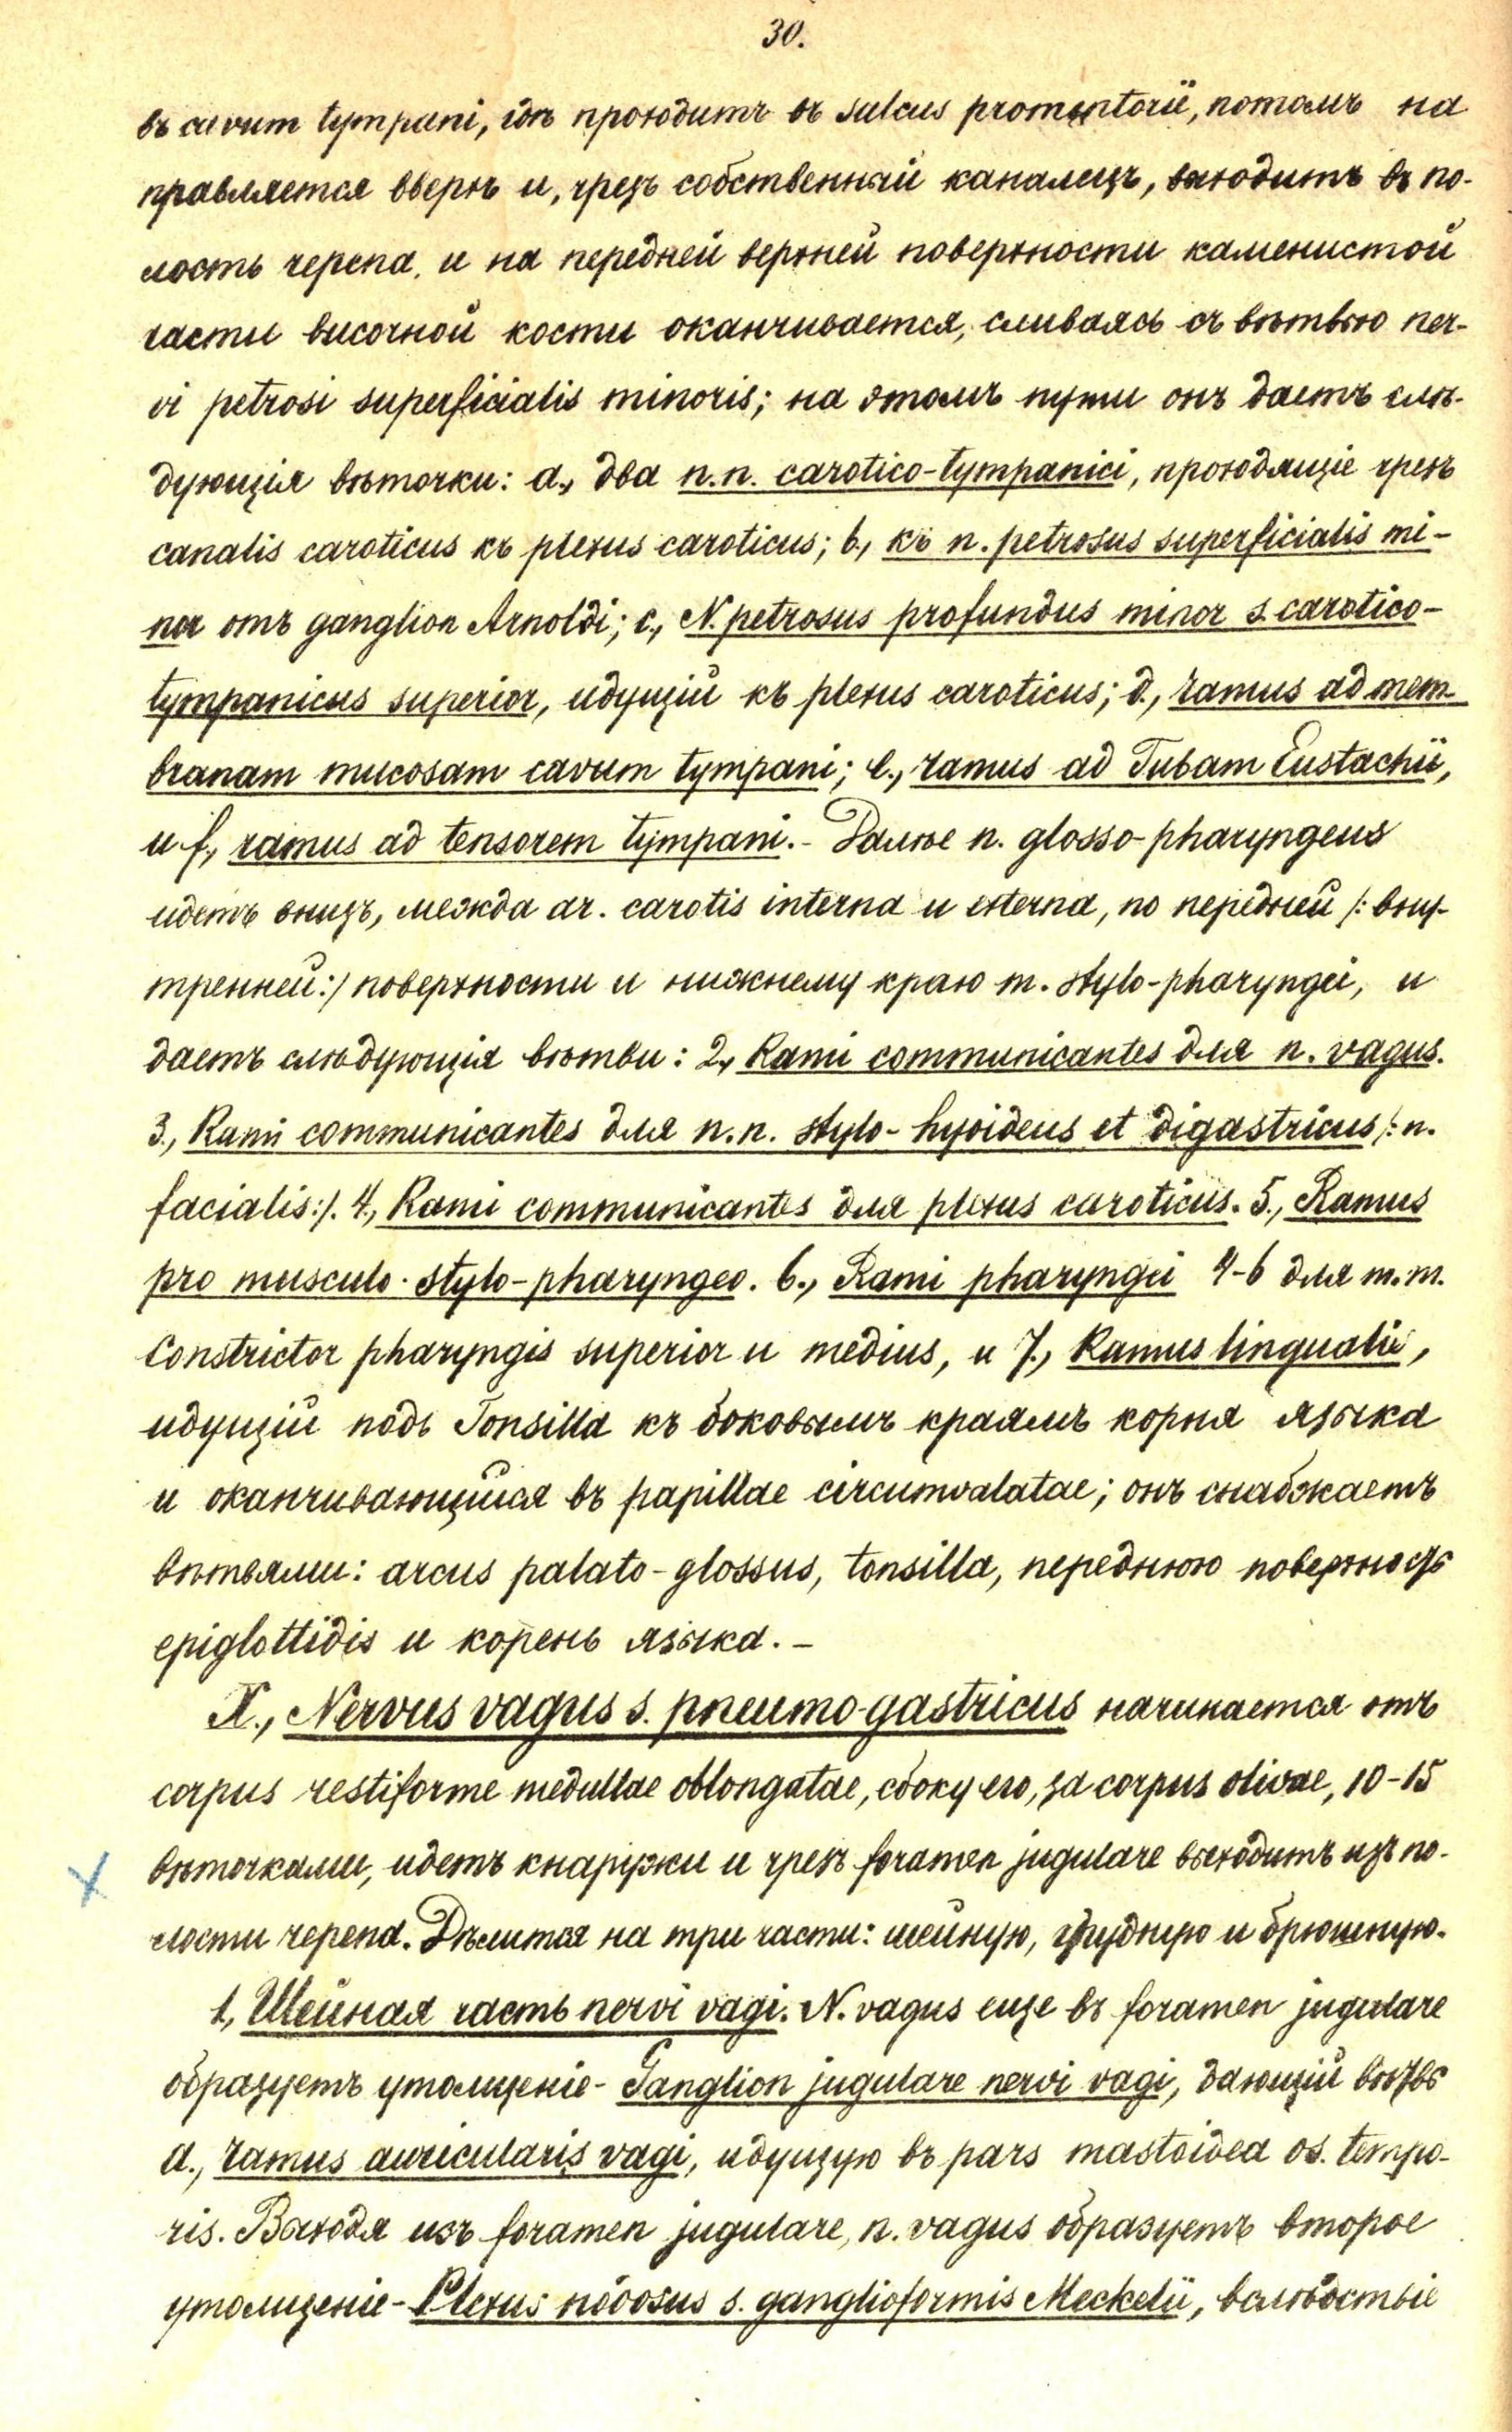 30.
въ cavum tympani, гдѣ проходитъ въ sulcus promontorii, потомъ на
правляется вверхъ и, чрезъ собственный каналецъ, входитъ въ по-
лость черепа, и на передней верхней поверхности каменистой
части височной кости оканчивается, сливаясь съ вѣтвью ner-
vi petrosi superficialis minoris; на этомъ пути онъ даетъ слѣ-
дующія вѣточки: a., два n.n. carotico-tympanici, проходящіе чрезъ
canalis caroticus къ plexus caroticus; b., къ n. petrosus superficialis mi-
nor отъ ganglion Arnoldi; c., N. petrosus profundus minor s. carotico-
tympanicus superior, идущій къ plexus caroticus; d., ramus ad mem-
branam mucosam cavum tympani; e., ramus ad Tubam Eustachii,
и f., ramus ad tensorem tympani.- Далѣе n. glosso-pharyngeus
идетъ внизъ, межда ar. carotis interna и externa, по передней /: вну-
тренней:/ поверхности и нижнему краю m. stylo-pharyngei, и
даетъ слѣдующія вѣтви: 2., Rami communicantes для n. vagus.
3., Rami communicantes для n.n. stylo-hyoideus et digastricus /: n.
facialis:/. 4., Rami communicantes для plexus caroticus. 5., Ramus
pro musculo-stylo-pharyngeo. 6., Rami pharyngei 4-6 для m.m.
Constrictor pharyngis superior и medius, и 7., Ramus lingualis,
идущій подъ Tonsilla къ боковымъ краямъ корня языка
и оканчивающійся въ papillae circumvalatae; онъ снабжаетъ
вѣтвями: arcus palato-glossus, tonsilla, переднюю поверхность
epiglottidis и корень языка. –
X., Nervus vagus s. pneumo-gastricus начинается отъ
corpus restiforme medullae oblongatae, сбоку его, за corpus olivae, 10-15
вѣточками, идетъ кнаружи и чрезъ foramen jugulare выходитъ изъ по-
лости черепа. Дѣлится на три части: шейную, грудную и брюшную.
1, Шейная часть nervi vagi. N. vagus еще въ foramen jugulare
образуетъ утолщеніе- Ganglion jugulare nervi vagi, дающій вѣтвь
a., ramus auricularis vagi, идущую въ pars mastoidea os. tempo-
ris. Выходя изъ foramen jugulare, n. vagus образуетъ второе
утолщеніе- Plexus nodosus s. ganglioformis Meckelii, вслѣдствіе